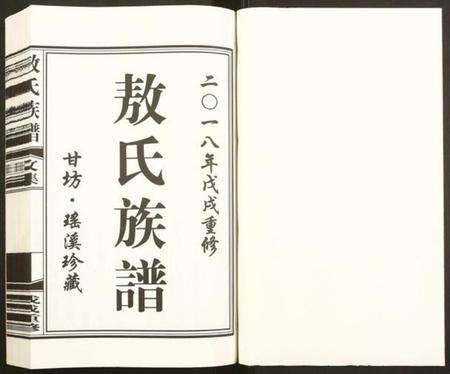 二〇一八年戊戌重修
敖氏族譜
甘坊·瑶溪珍藏
敖氏族譜
文集
戊戌重修